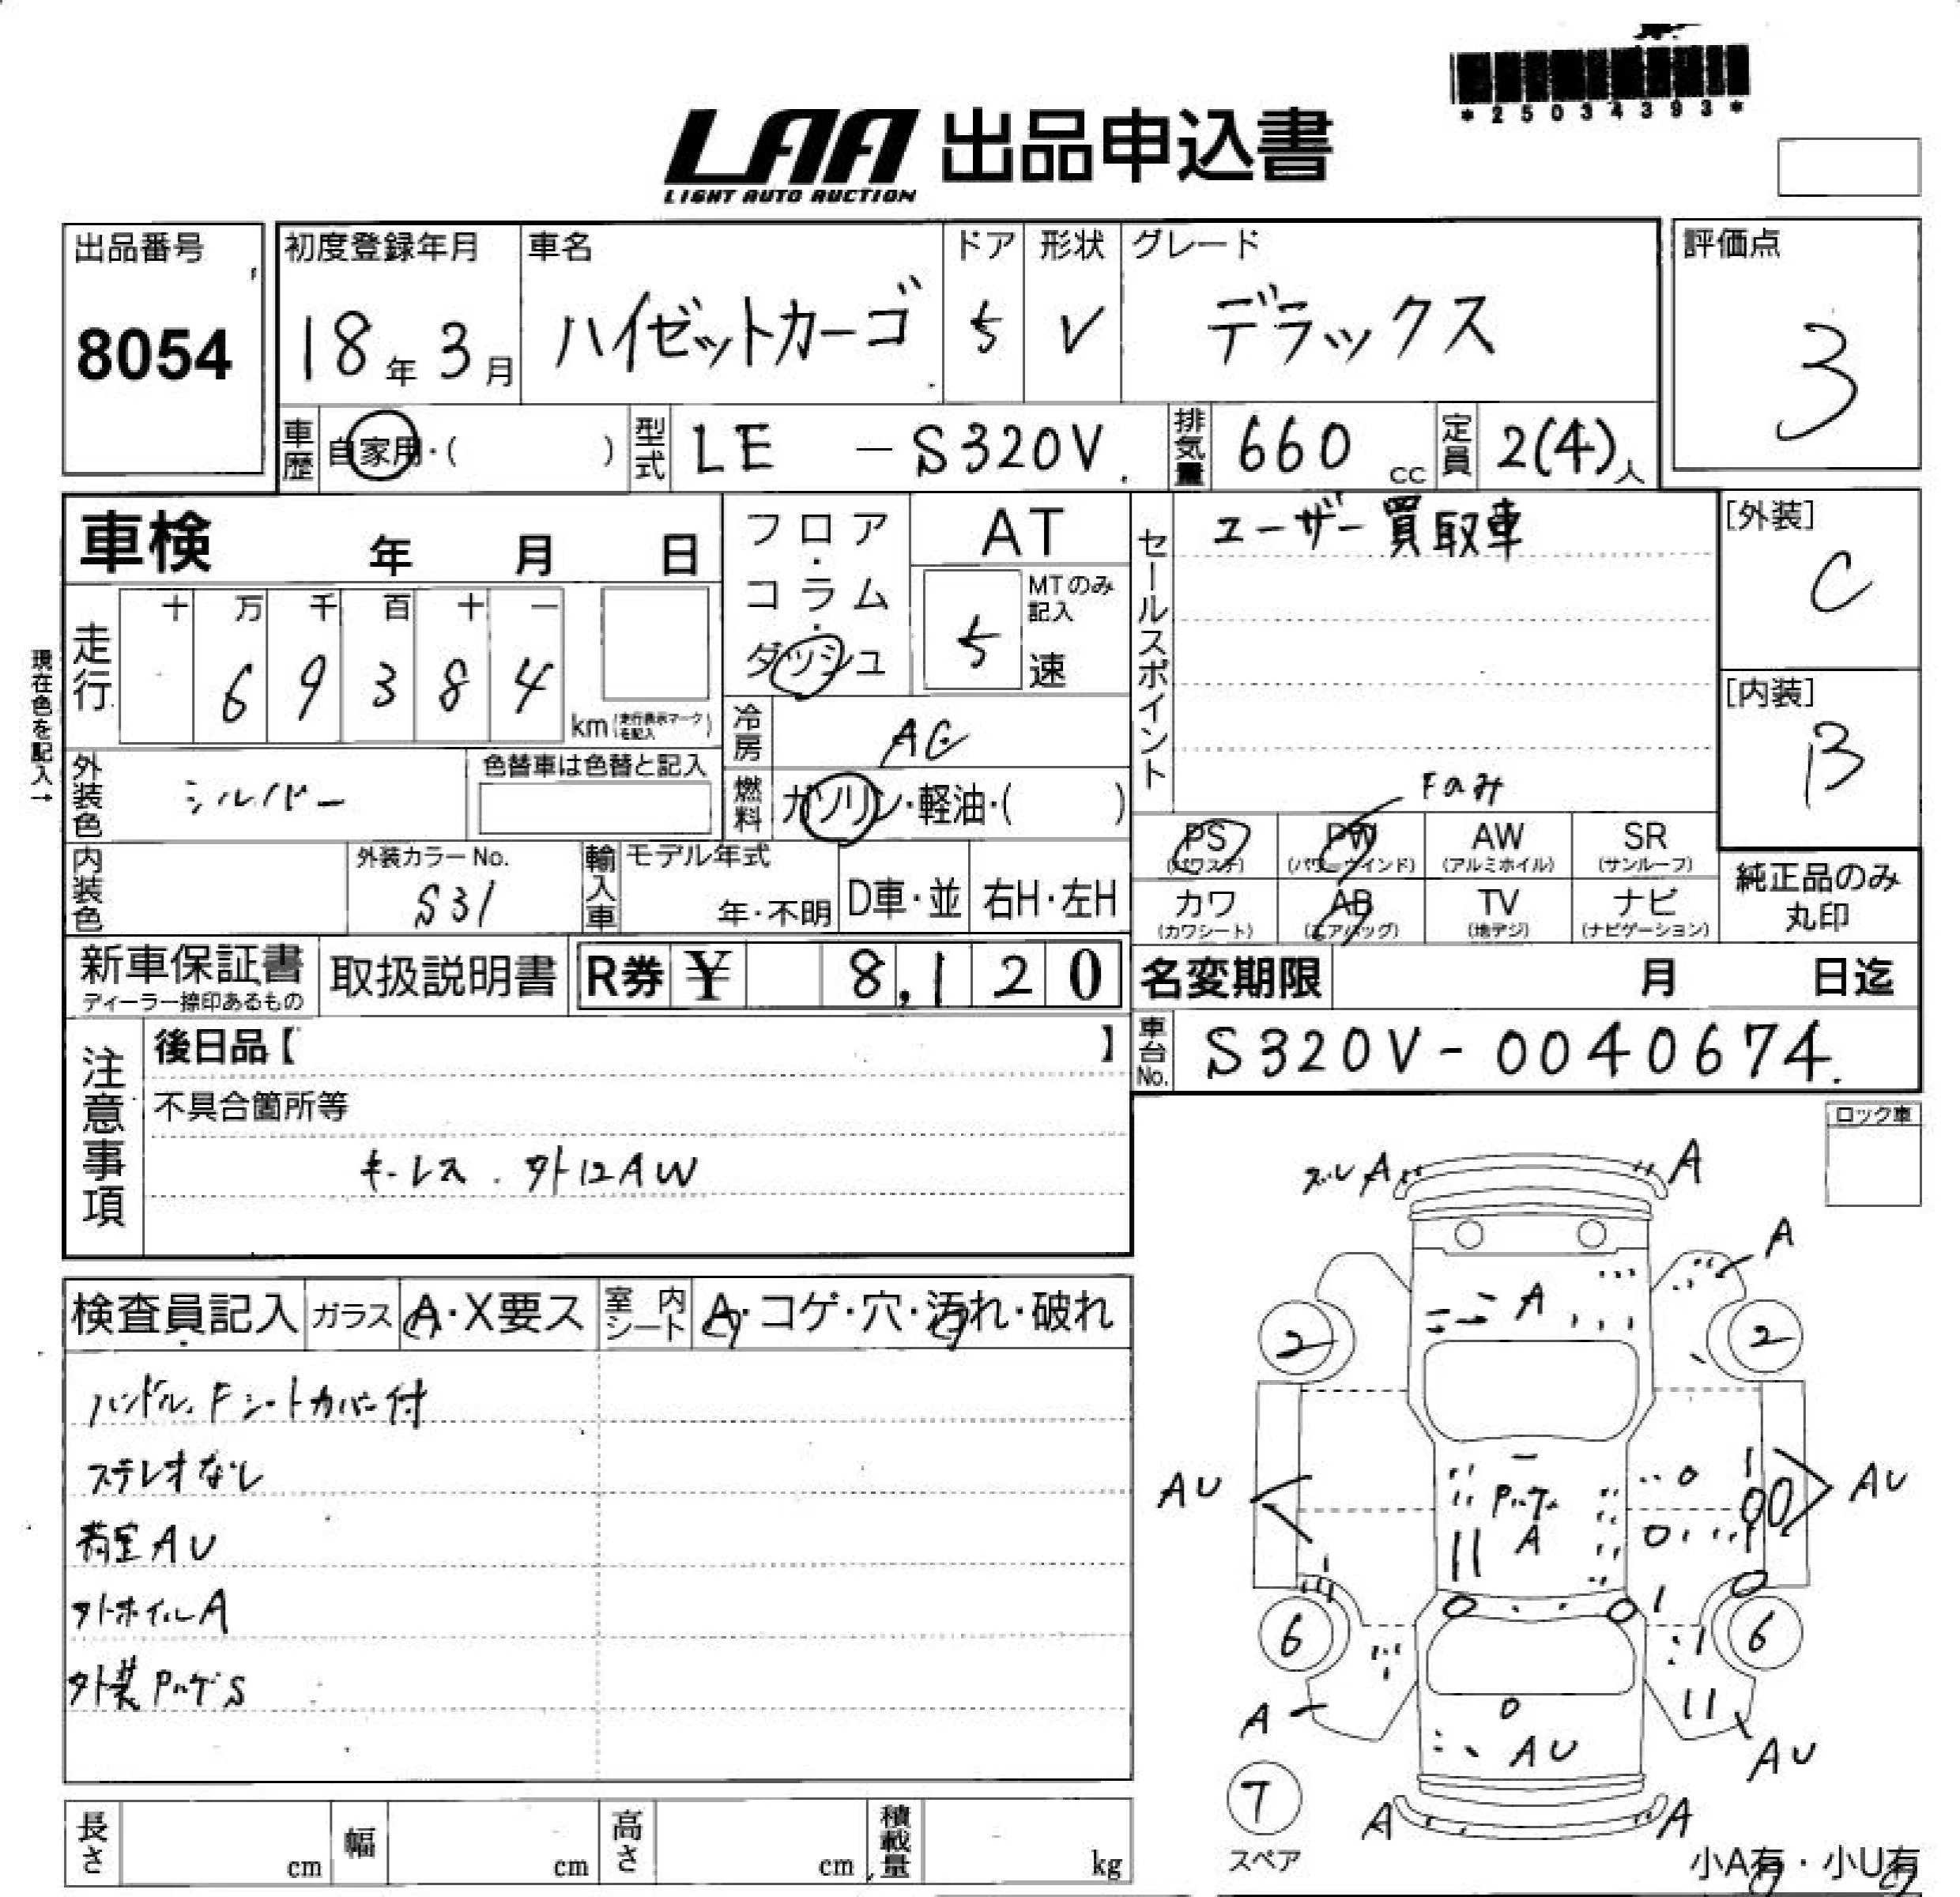 *25034393*
LAA 出品申込書
LIGHT AUTO AUCTION
出品番号 初度登録年月 車名 ドア 形状 グレード 評価点
8054 18年3月 ハイゼットカーゴ 5 V デラックス 3
車歴 自家用・( ) 型式 LE - S320V 排気量 660 cc 定員 2(4)人
車検 年 月 日 フロア・コラム・ダッシュ AT セールスポイント ユーザー買取車 [外装] C
5 MTのみ記入 速
現在色を記入→
走行 十 万 千 百 十 一
6 9 3 8 4 km (走行表示マークを記入)
冷房 AC [内装] B
外装色 シルバー 色替車は色替と記入 燃料 ガソリン・軽油・( )
Fのみ
PS (パワステ) PW (パワーウインド) AW (アルミホイル) SR (サンルーフ)
内装色 外装カラーNo. S31 輸入車 モデル年式 年・不明 D車・並 右H・左H
カワ (カワシート) AB (エアバッグ) TV (地デジ) ナビ (ナビゲーション) 純正品のみ丸印
新車保証書 ディーラー捺印あるもの 取扱説明書 R券 ¥ 8,120 名変期限 月 日迄
注意事項 後日品【 】 車台No. S320V-0040674
不具合箇所等 ロック車
キーレス. 外12AW
検査員記入 ガラス A・X要ス 室内シート A・コゲ・穴・汚れ・破れ
ハンドル、Fシートカバー付
ステレオなし
荷室AU
外ホイルA
外装PハゲS
ズレA A
A
A
2 2
AU Pハゲ A AU
6 6
A AU AU
7 スペア
A A
小A有・小U有
長さ cm 幅 cm 高さ cm 積載量 kg